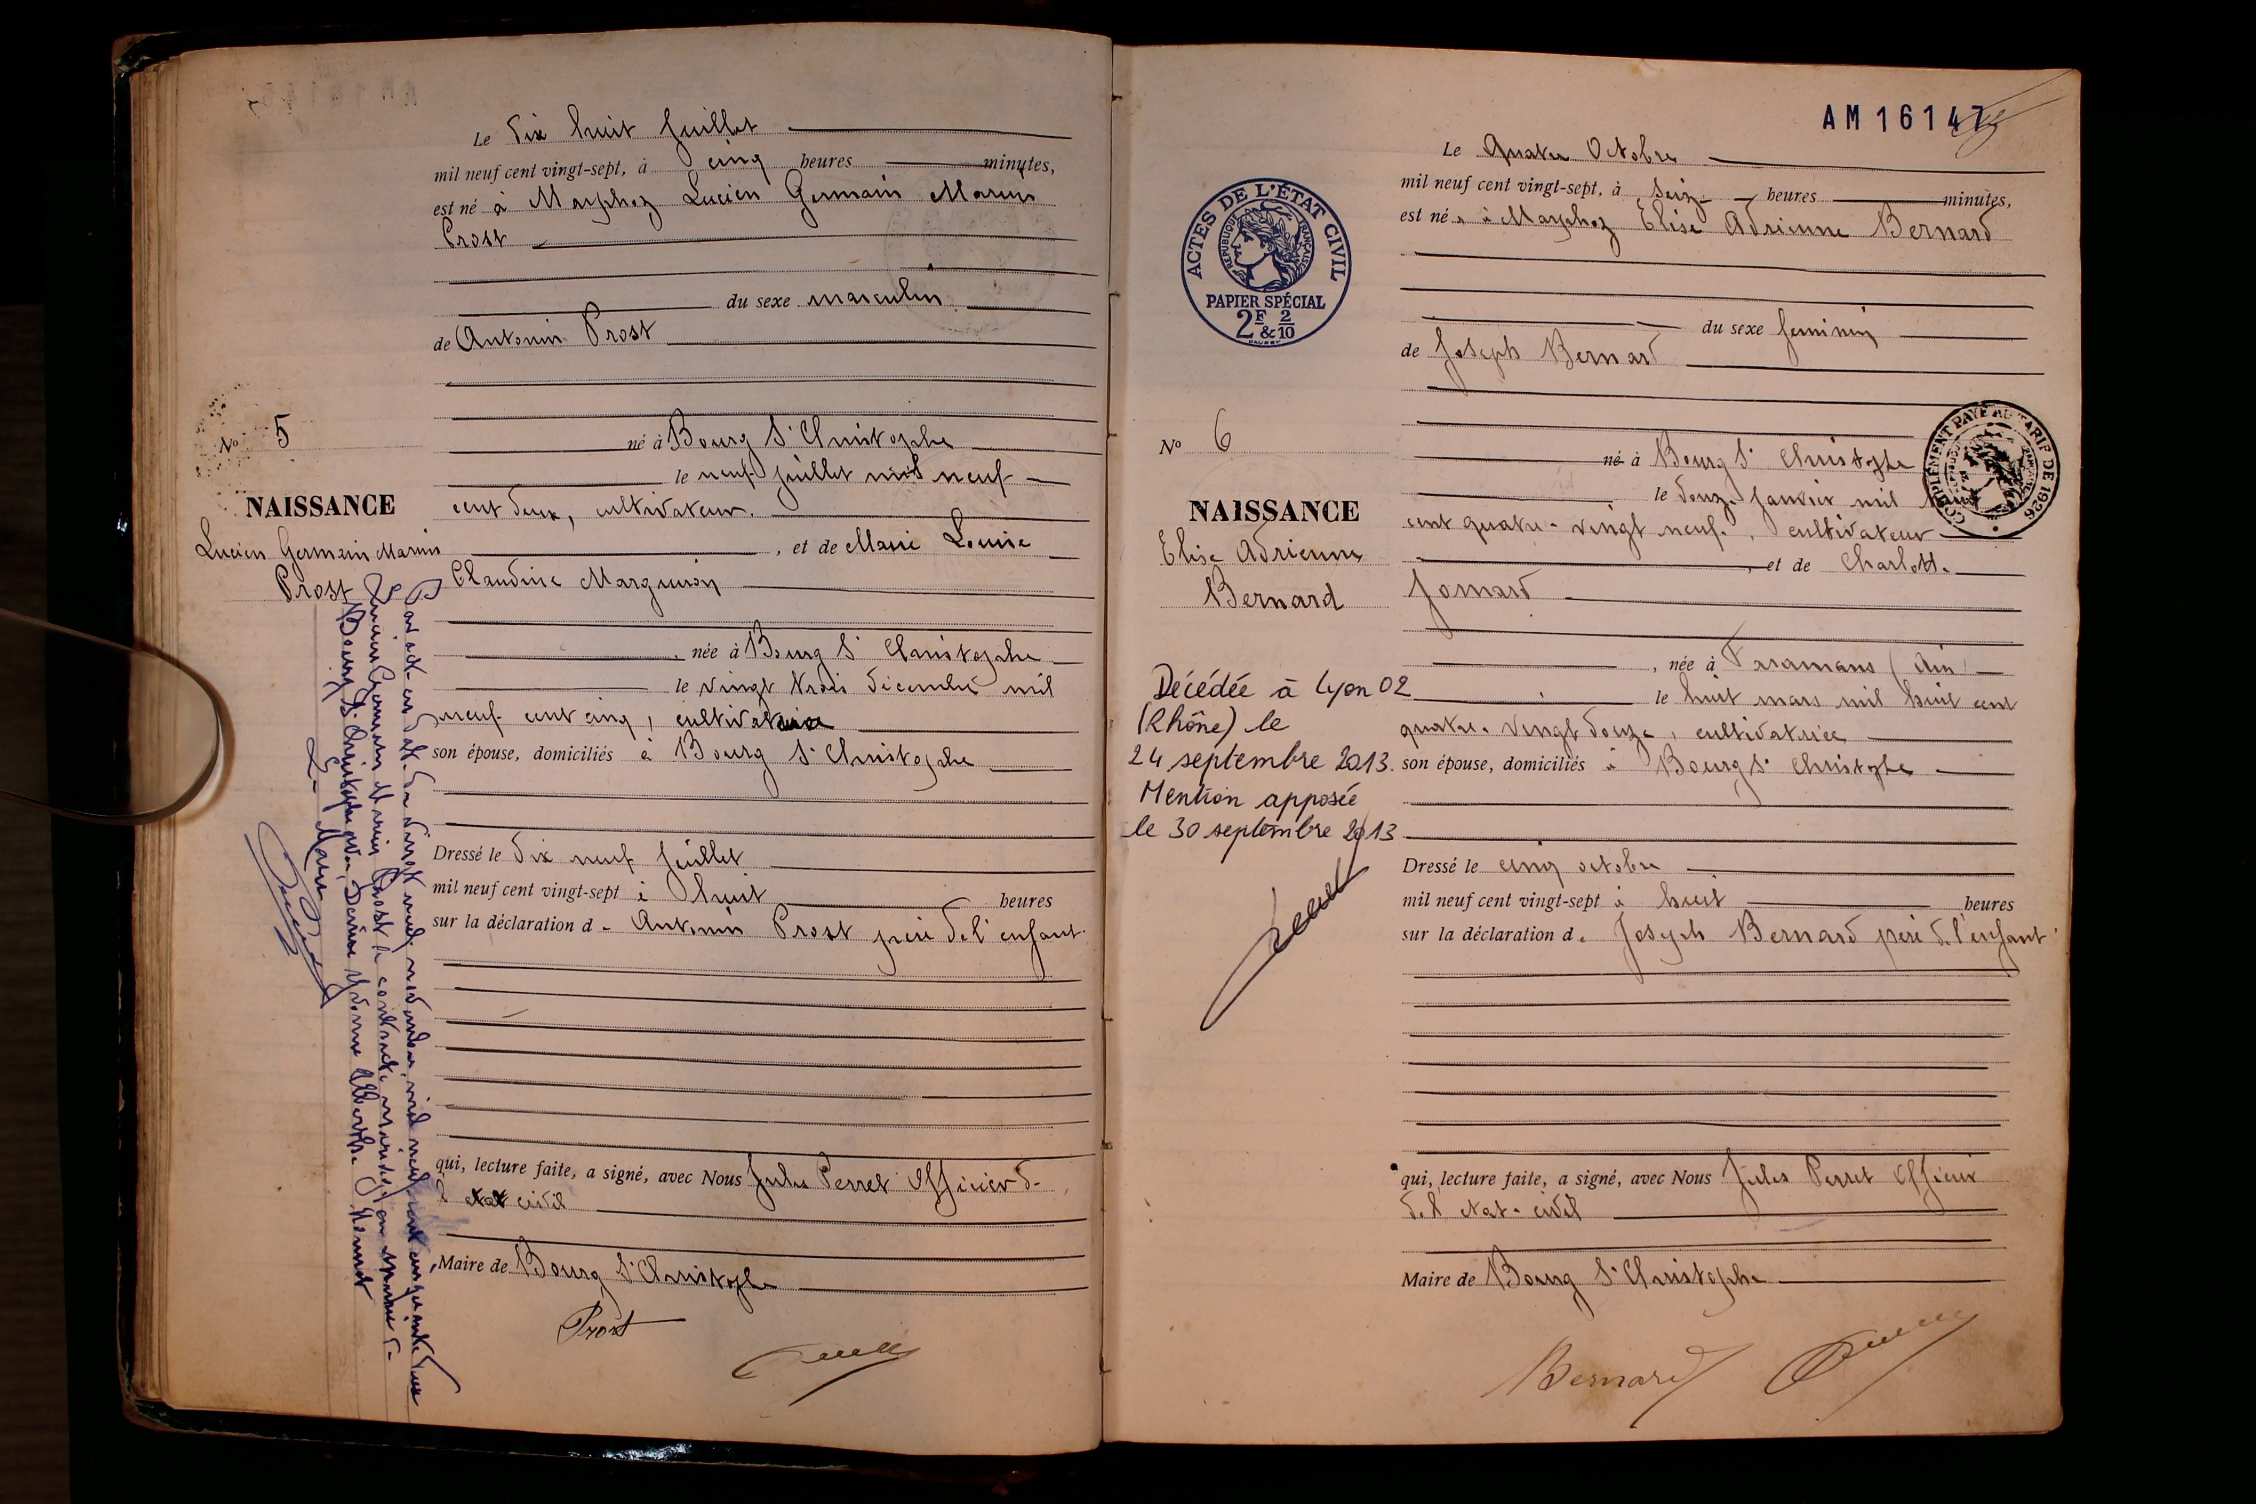 Le dix huit Juillet
mil neuf cent vingt-sept, à cinq heures minutes,
est né à Marphoz Lucien Germain Marius
Prost
du sexe masculin
de Antonin Prost
né à Bourg St Christophe
le neuf juillet mil neuf
cent deux, cultivateur.
, et de Marie Louise
Claudine Marguin
, née à Bourg St Christophe
le vingt trois décembre mil
neuf cent cinq, cultivatrice
son épouse, domiciliés à Bourg St Christophe
Dressé le dix neuf Juillet
mil neuf cent vingt-sept à huit heures
sur la déclaration de Antonin Prost père de l'enfant
qui, lecture faite, a signé, avec Nous Jules Perret Officier de
l'état civil
Maire de Bourg St Christophe
Prost
No 5
NAISSANCE
Lucien Germain Marius
Prost
Par acte en date du vingt neuf novembre mil neuf cent cinquante deux
Lucien Germain Marius Prost a contracté mariage en mairie de
Bourg St Christophe avec Denise Yvonne
Le Maire
AM16147
Le Quatre Octobre
mil neuf cent vingt-sept, à seize heures minutes,
est née à Marphoz Elise Adrienne Bernard
du sexe feminin
de Joseph Bernard
né à Bourg St Christophe
le douze Janvier mil
cent quatre-vingt neuf, cultivateur
, et de Charlotte
Jomard
, née à Faramans (Ain)
le huit mars mil huit cent
quatre-vingt douze, cultivatrice
son épouse, domiciliés à Bourg St Christophe
Dressé le cinq octobre
mil neuf cent vingt-sept à huit heures
sur la déclaration de Joseph Bernard père de l'enfant
qui, lecture faite, a signé, avec Nous Jules Perret Officier
de l'état-civil
Maire de Bourg St Christophe
Bernard
ACTES DE L'ÉTAT CIVIL
RÉPUBLIQUE FRANÇAISE
PAPIER SPÉCIAL
2F & 2/10
COMPLÉMENT PAYÉ AU TARIF DE 1926
No 6
NAISSANCE
Elise Adrienne
Bernard
Décédée à Lyon 02
(Rhône) le
24 septembre 2013.
Mention apposée
le 30 septembre 2013